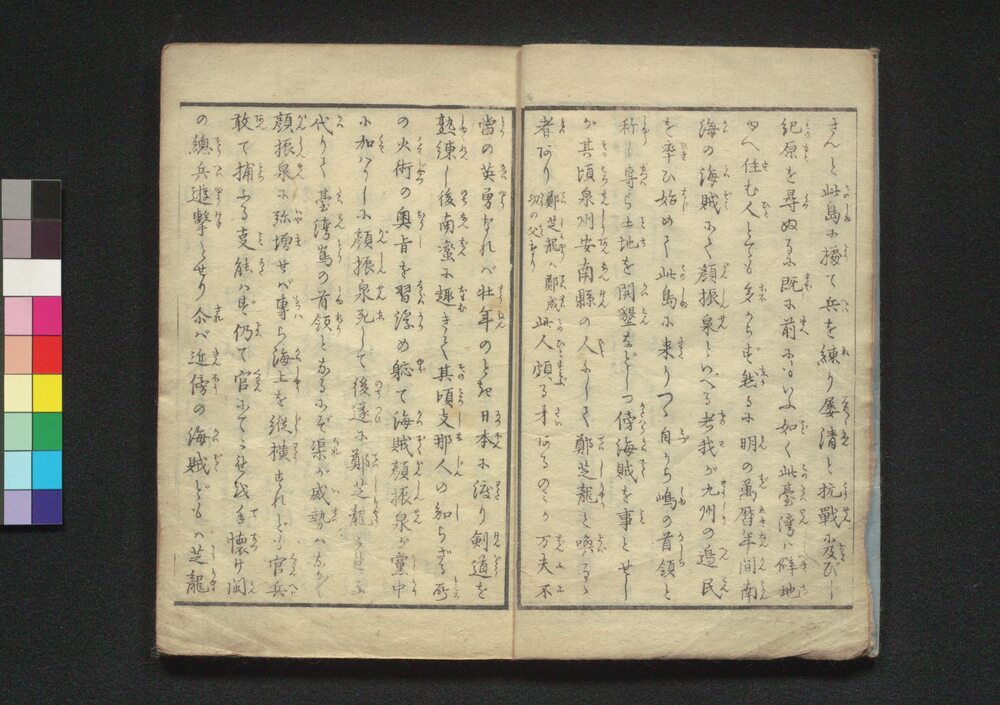 さんと此島に據て兵を練り屡清と抗戰に及びし
紀原を尋ぬるに既に前にもいふ如く此臺湾ハ僻地
ゆへ住む人とても多からず然るに明の萬暦年間南
海の海賊にて顔振泉といへる者我が九州の邉民
を率ひ始めて此島に来りつゝ自から嶋の首領と
称し専ら土地を開墾なしつ傍海賊を事とせし
が其頃泉州安南縣の人にして鄭芝龍と喚るゝ
者あり 鄭芝龍ハ鄭成功の父なり 此人頗る才あるのミか万夫不
當の英勇なれバ壮年のとき日本に渡り剣道を
熟練し後南蛮に趣きて其頃支那人の知らざる所
の火術の奥旨を習練め躯て海賊顔振泉が黨中
に加ハりしに顔振泉死して後遂に鄭芝龍これに
代りて臺湾嶌の首領となるにぞ渠が威勢ハなか〳〵
顔振泉に弥増せバ専ら海上を縦横すれども官兵
敢て捕ふる支能ハず仍て官にてこれを手懐け閩
の總兵遊撃とせり 尓バ近傍の海賊どもハ芝龍